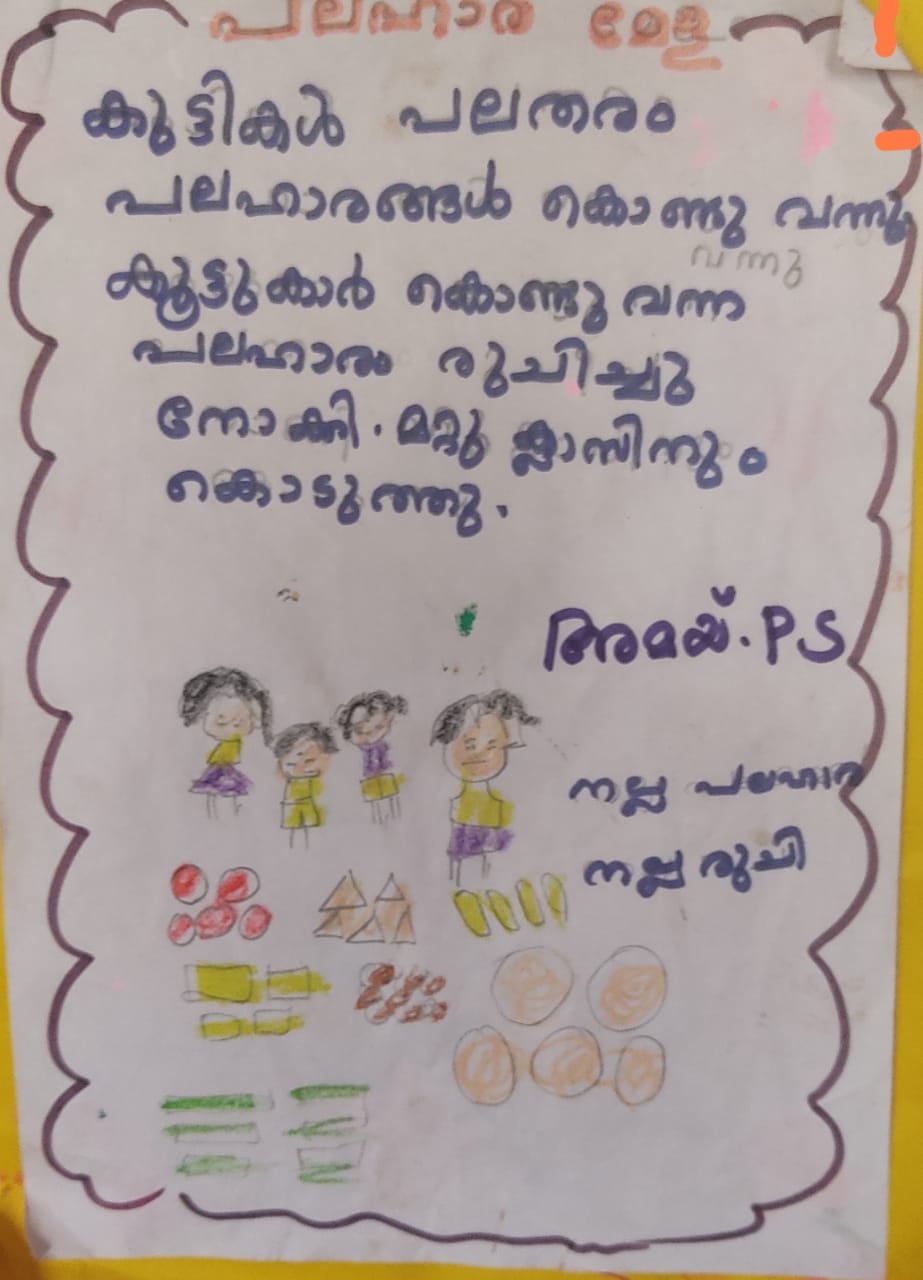 പലഹാര മേള
കുട്ടികൾ പലതരം
പലഹാരങ്ങൾ കൊണ്ടു വന്നു
വന്നു
കൂട്ടുകാർ കൊണ്ടു വന്ന
പലഹാരം രുചിച്ചു
നോക്കി. മറ്റു ക്ലാസിന്നും
കൊടുത്തു.
അമയ്. P.S
നല്ല പലഹാര
നല്ല രുചി